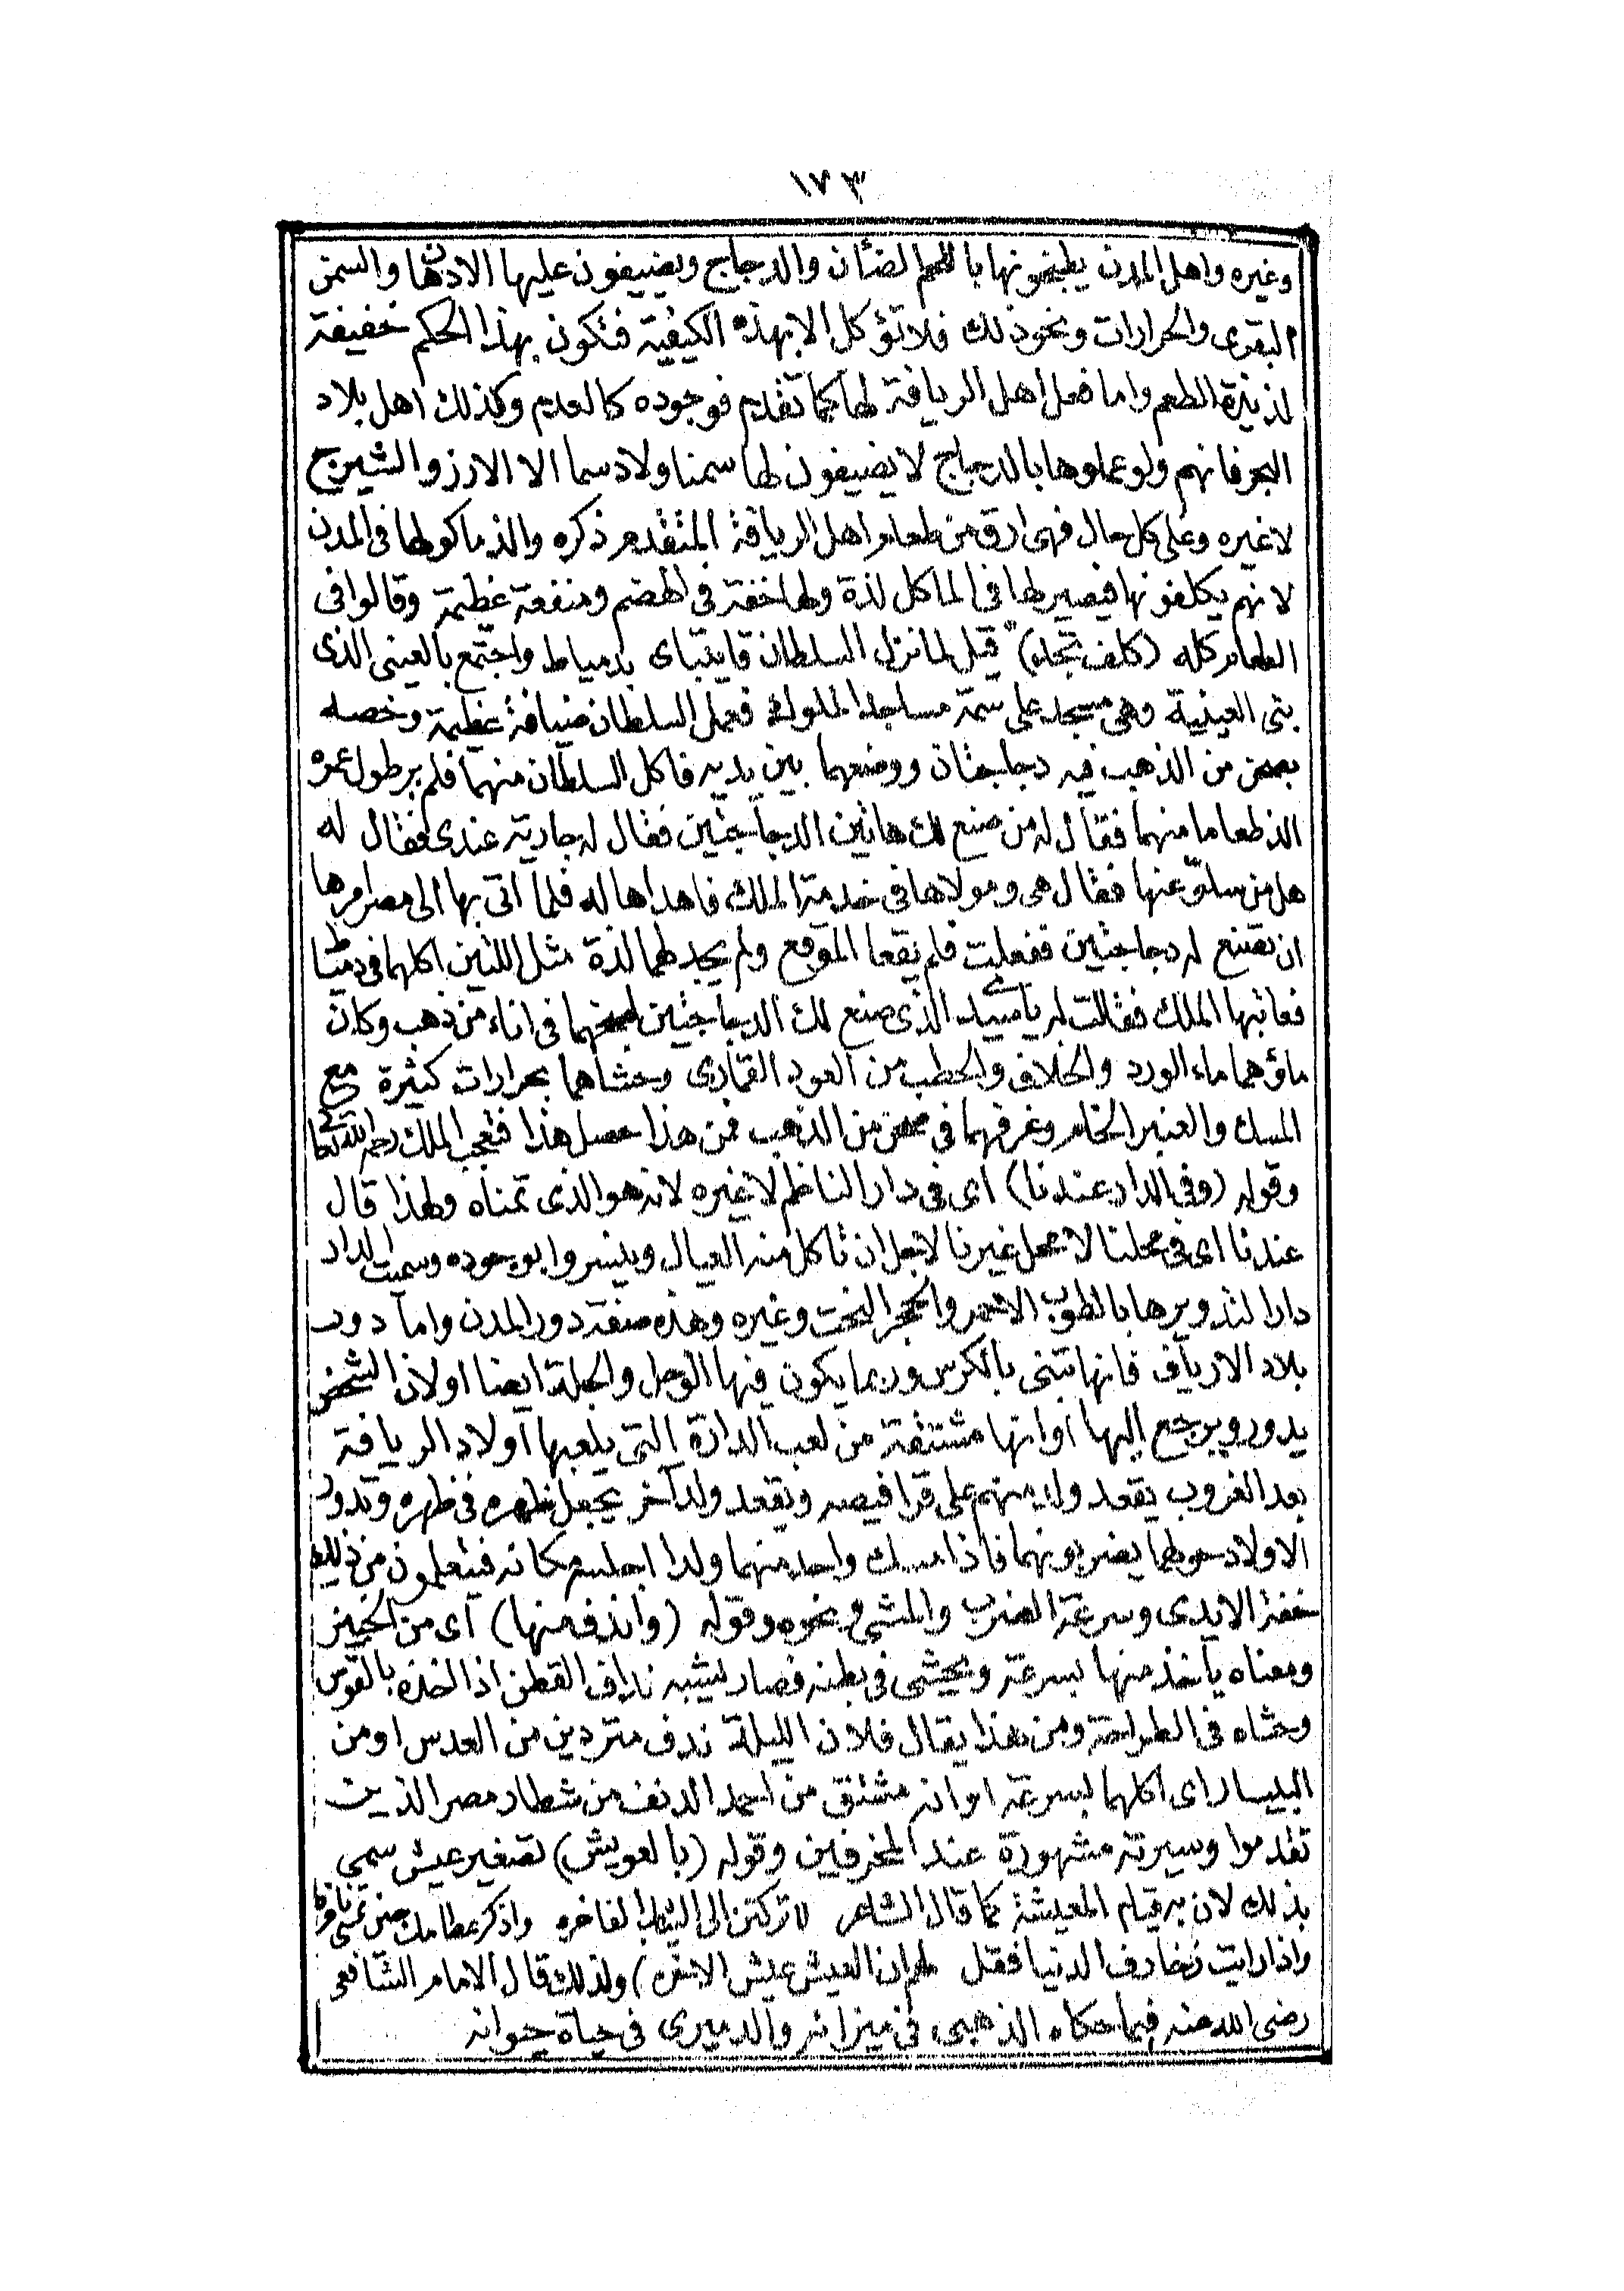 ١٧٣
وغيره واهل المدن يطبخونها باللحم الضئان والدجاج ويضيفون عليها الادهان والسمن
البقرى والحرارات ونحو ذلك فلا تؤكل الا بهذه الكيفية فتكون بهذا الحكم خفيفة
لذيذة الطعم واما فعل اهل الريافة لها كما تقدم فوجوده كالعدم وكذلك اهل بلاد
البحر فانهم ولو عملوها بالدجاج لا يضيفون لها سمنا ولا دسما الا الارز والشيرج
لا غيره وعلى كل حال فهى ارق من طعام اهل الريافة المتقدم ذكره والذ ماكولها فى المدن
لانهم يكلفونها فيصير لها فى الماكل لذة ولها خفة فى الهضم ومنفعة عظيمة وقالوا فى
الطعام كله (كلف تجله) قيل لما نزل السلطان قايتباى بدمياط واجتمع بالعينى الذى
بنى العينية وهى مسجد على سمة مساجد الملوك فعمل السلطان ضيافة عظيمة وخصه
بصحن من الذهب فيه دجاجتان ووضعهما بين يديه فاكل السلطان منهما فلم ير طول عمره
الذ طعاما منهما فقال له من صنع لك هاتين الدجاجتين فقال له جارية عندى فقال له
هل من سلو عنها فقال هى ومولاها فى خدمة الملك فاهداها له فلما اتى بها الى مصر امرها
ان تصنع له دجاجتين ففعلت فلم يقعا الموقع ولم يجد لهما لذة مثل اللتين اكلهما فى دمياط
فعاتبها الملك فقالت له يا سيدى الذى صنع لك الدجاجتين طبخهما فى اناء من ذهب وكان
ماؤهما ماء الورد والخلاف والحطب من العود القمارى وحشاهما بحرارات كثيرة مع
المسك والعنبر الخام وغرفهما فى صحن من الذهب فمن هذا حصل هذا فتعجب الملك رحمه الله تعالى
وقوله (وفى الدار عندنا) اى فى دار الناظم لا غيره لانه هو الذى تمناه ولهذا قال
عندنا اى فى محلنا لا محل غيرنا لاجل ان تاكل منه العيال وينسروا بوجوده وسميت الدار
دارا لتدويرها بالطوب الاحمر والحجر النحت وغيره وهذه صفة دور المدن واما دور
بلاد الارياف فانها تبنى بالكرس وربما يكون فيها الوحل والجلة ايضا او لان الشخص
يدور ويرجع اليها او انها مشتقة من لعب الدارة التى يلعبها اولاد الريافة
بعد الغروب يقعد ولد منهم على قرافيصه ويقعد ولد آخر يجعل ظهره فى ظهره وتدور
الاولاد حولهما يضربونهما فاذا مسك واحد منهما ولدا اجلسه مكانه فيتعلمون من ذلك
خفة الايدى وسرعة الضرب والمشى ونحوه وقوله (واندف منها) اى من الخبيز
ومعناه يأخذ منها بسرعة ويحشى فى بطنه فصار يشبه نداف القطن اذا اخذه بالقوس
وحشاه فى الطراحة ومن هذا يقال فلان الليلة ندف متردين من العدس او من
البيسار اى اكلهما بسرعة او انه مشتق من احمد الدنف من شطار مصر الذين
تقدموا وسيرته مشهورة عند المخرفين وقوله (بالعويش) تصغير عيش سمي
بذلك لان به قيام المعيشة كما قال الشاعر لا تركنن الى الثياب الفاخره واذكر عظامك حين تمسى ناخره
واذا رايت زخارف الدنيا فقل لهم ان العيش عيش الاخره) ولذلك قال الامام الشافعى
رضى الله عنه فيما حكاه الذهبى فى ميزانه والدميرى فى حياة حيوانه